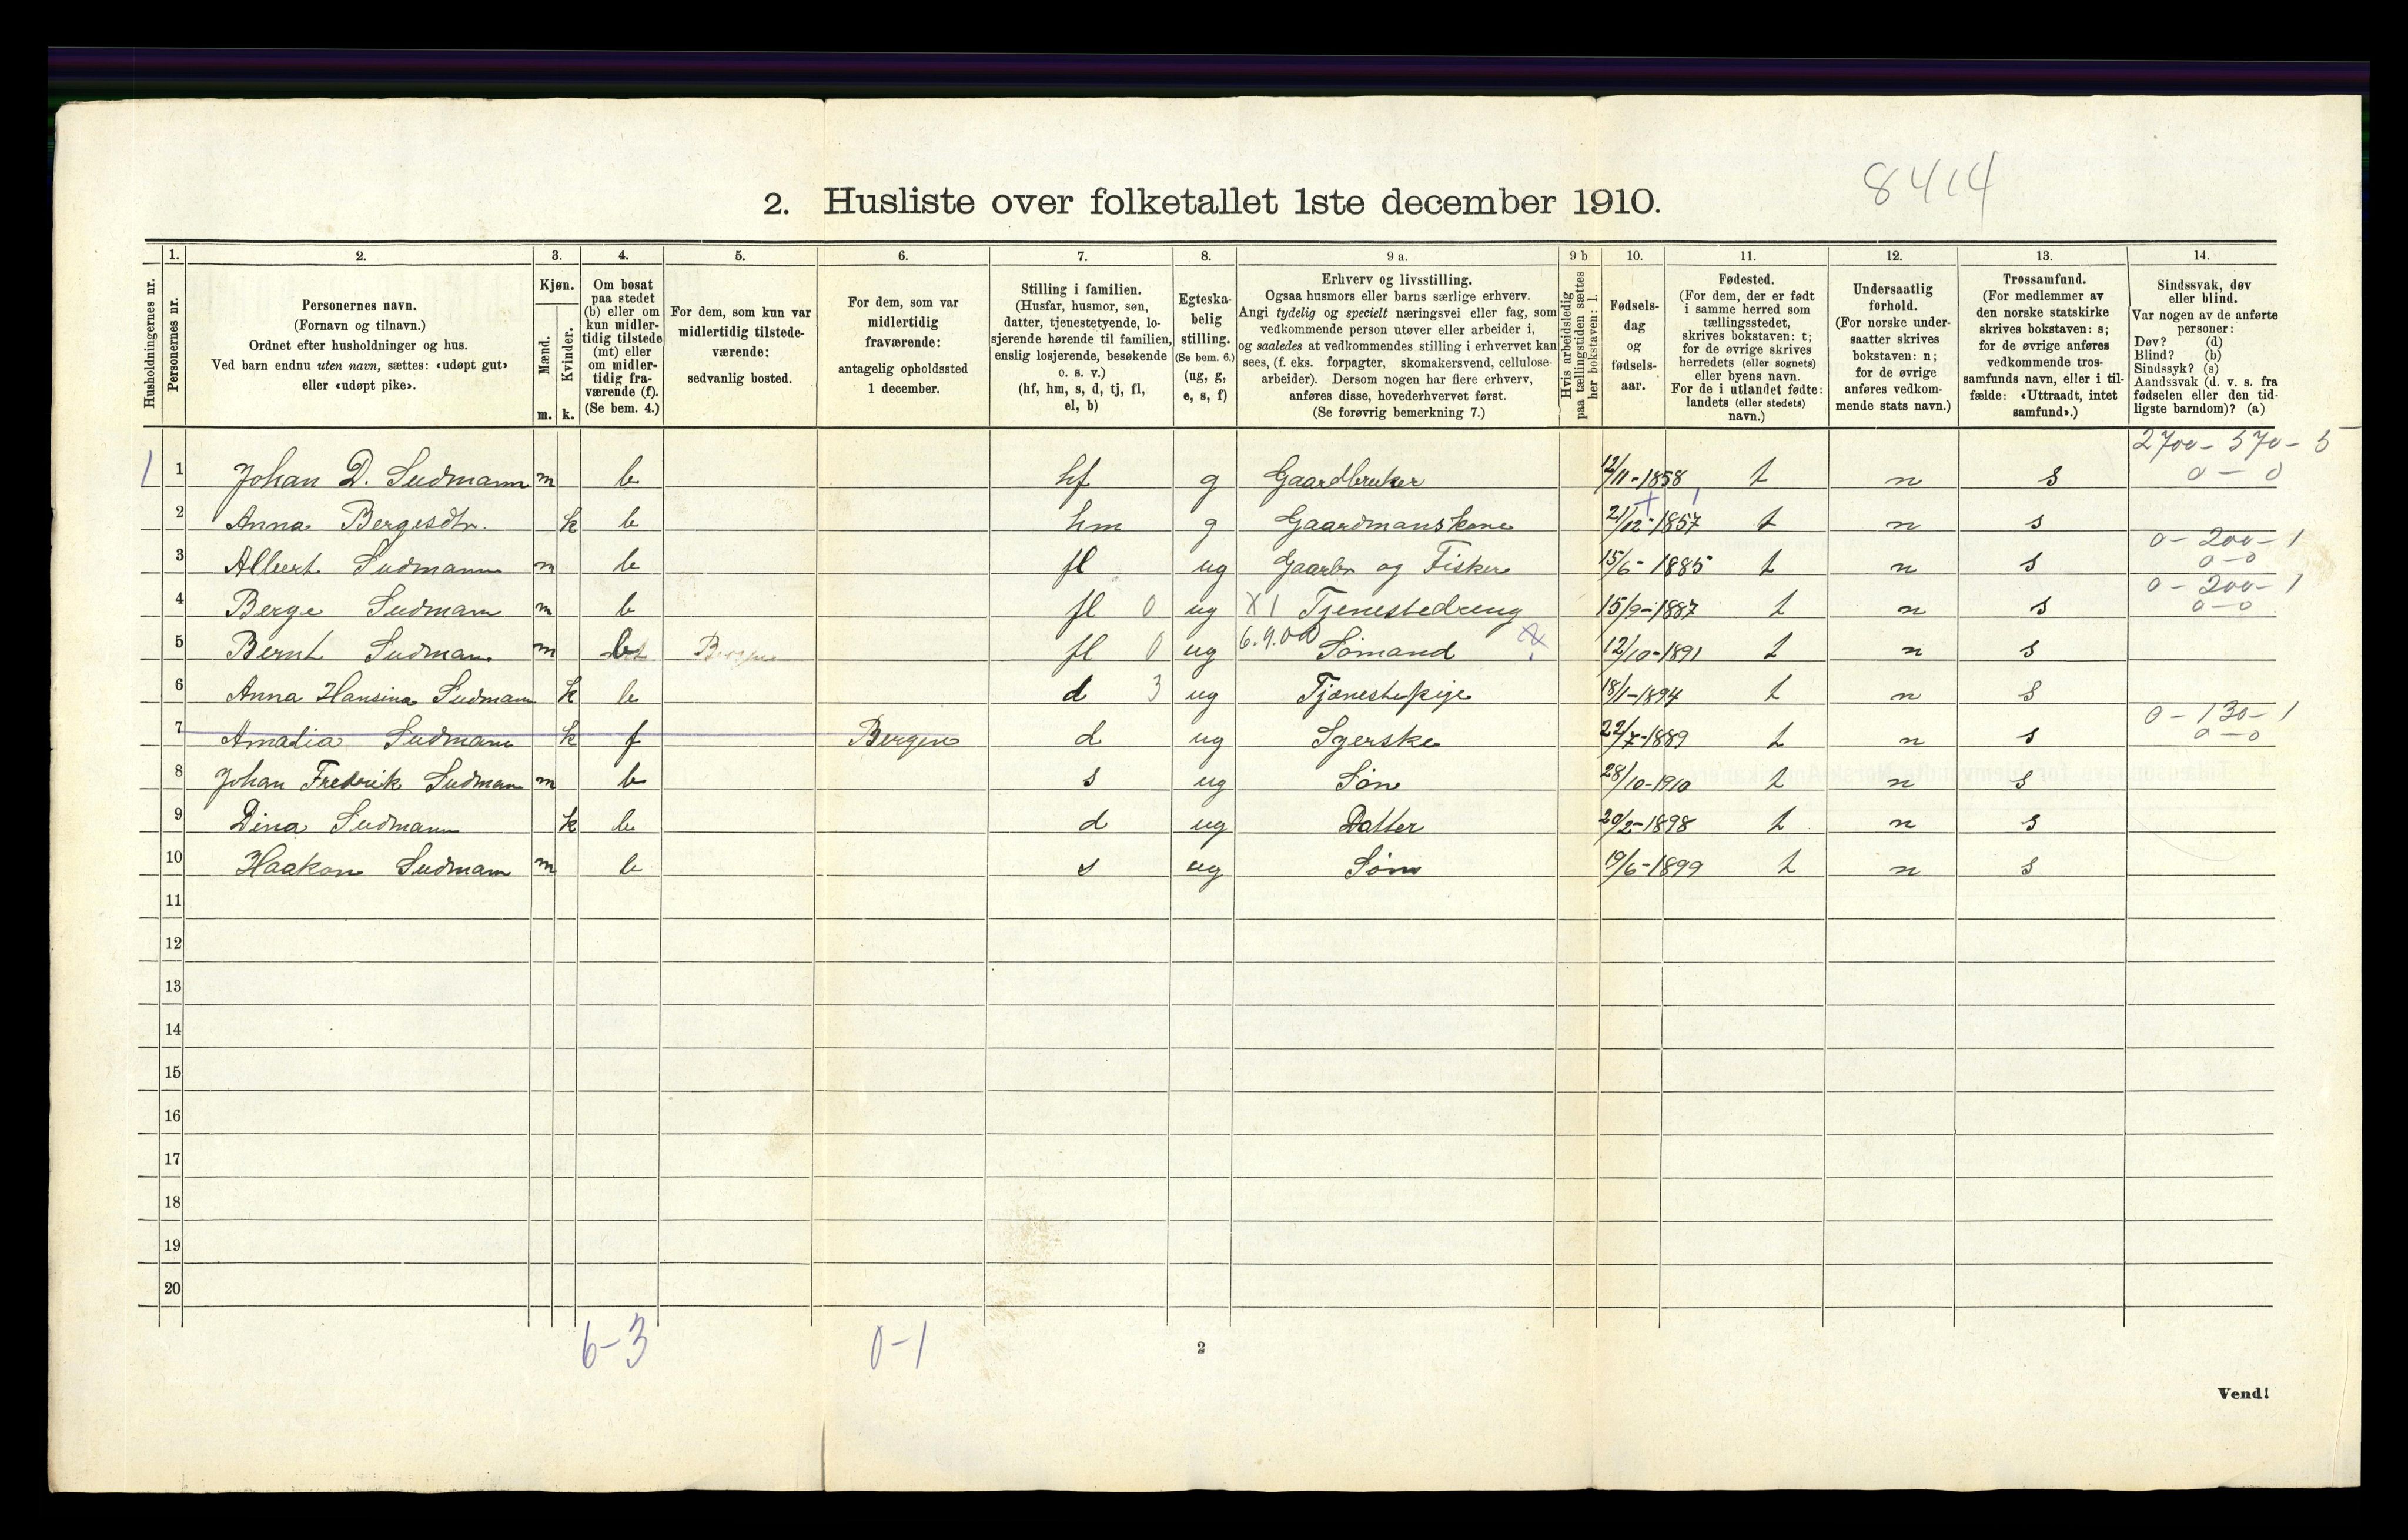 8414
2. Husliste over folketallet 1ste december 1910.
Husholdningernes nr.
1. Personernes nr.
2. Personernes navn.
(Fornavn og tilnavn.)
Ordnet efter husholdninger og hus.
Ved barn endnu uten navn, sættes: «udøpt gut»
eller «udøpt pike».
3. Kjøn.
Mænd. m.
Kvinder. k.
4. Om bosat
paa stedet
(b) eller om
kun midler-
tidig tilstede
(mt) eller
om midler-
tidig fra-
værende (f).
(Se bem. 4.)
5. For dem, som kun var
midlertidig tilstede-
værende:
sedvanlig bosted.
6. For dem, som var
midlertidig
fraværende:
antagelig opholdssted
1 december.
7. Stilling i familien.
(Husfar, husmor, søn,
datter, tjenestetyende, lo-
sjerende hørende til familien,
enslig losjerende, besøkende
o. s. v.)
(hf, hm, s, d, tj, fl,
el, b)
8. Egteska-
belig
stilling.
(Se bem. 6.)
(ug, g,
e, s, f)
9 a. Erhverv og livsstilling.
Ogsaa husmors eller barns særlige erhverv.
Angi tydelig og specielt næringsvei eller fag, som
vedkommende person utøver eller arbeider i,
og saaledes at vedkommendes stilling i erhvervet kan
sees, (f. eks. forpagter, skomakersvend, cellulose-
arbeider). Dersom nogen har flere erhverv,
anføres disse, hovederhvervet først.
(Se forøvrig bemerkning 7.)
9 b Hvis arbeidsledig
paa tællingstiden sættes
her bokstaven: l.
10. Fødsels-
dag
og
fødsels-
aar.
11. Fødested.
(For dem, der er født
i samme herred som
tællingsstedet,
skrives bokstaven: t;
for de øvrige skrives
herredets (eller sognets)
eller byens navn.
For de i utlandet fødte:
landets (eller stedets)
navn.)
12. Undersaatlig
forhold.
(For norske under-
saatter skrives
bokstaven: n;
for de øvrige
anføres vedkom-
mende stats navn.)
13. Trossamfund.
(For medlemmer av
den norske statskirke
skrives bokstaven: s;
for de øvrige anføres
vedkommende tros-
samfunds navn, eller i til-
fælde: «Uttraadt, intet
samfund».)
14. Sindssvak, døv
eller blind.
Var nogen av de anførte
personer:
Døv? (d)
Blind? (b)
Sindssyk? (s)
Aandssvak (d. v. s. fra
fødselen eller den tid-
ligste barndom)? (a)
2700 - 570 - 5
1 1 Johan D. Sudmann m b hf g Gaardbruker 12/11-1858 t n s 0 - 0
2 Anna Bergesdtr. k b hm g Gaardmanskone 21/12-1857 t n s
0 - 200 - 1
3 Albert Sudmann m b fl ug Gaarbr og Fisker 15/6-1885 t n s 0-0
0 - 200 - 1
4 Berge Sudmann m b fl 0 ug X 1 Tjenestedreng 15/9-1887 t n s 0-0
5 Bernt Sudman m b Bergen fl 0 ug 6.9.00 Sømand 12/10-1891 t n s
6 Anna Hansina Sudmann k b d 3 ug Tjænestepige 18/1-1894 t n s
0 - 130 - 1
7 Amalia Sudmann k f Bergen d ug Syerske 22/7-1889 t n s 0-0
8 Johan Fredrik Sudman m b s ug Søn 28/10-1910 t n s
9 Dina Sudmann k b d ug Datter 20/2-1898 t n s
10 Haakon Sudmann m b s ug Søn 19/6-1899 t n s
11
12
13
14
15
16
17
18
19
20
6-3 0-1
2
Vend!